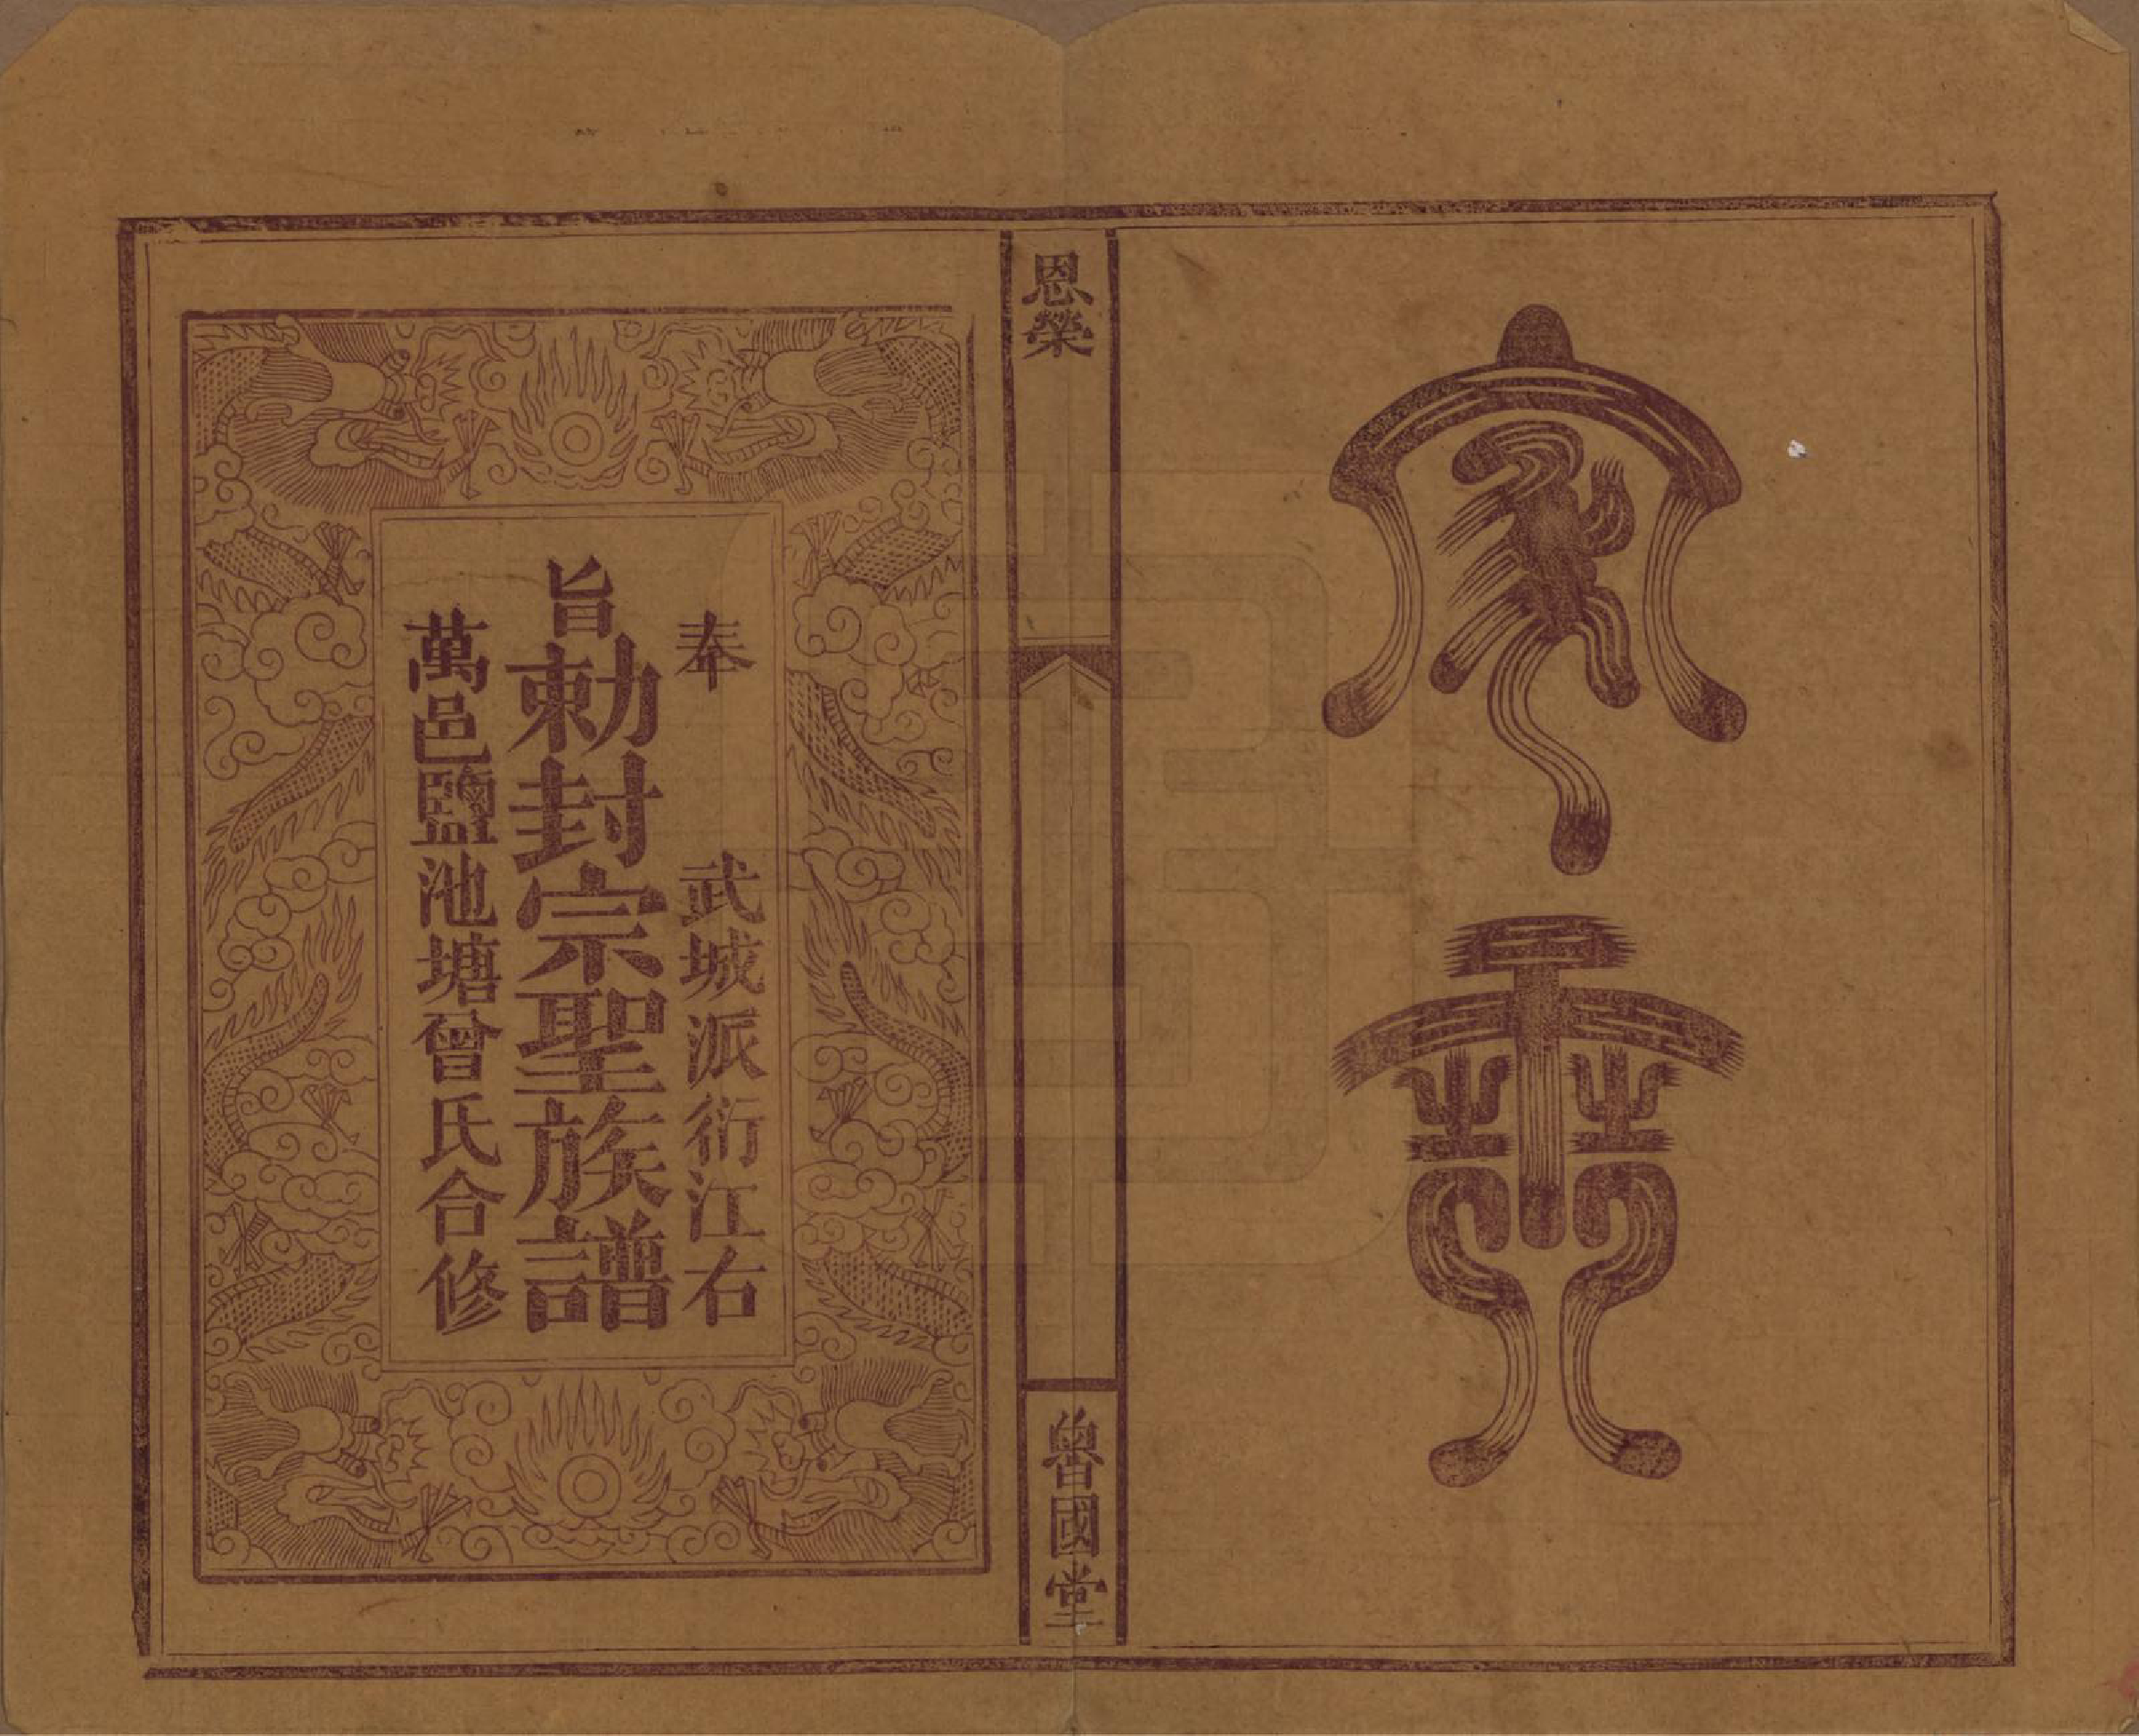 家乘
恩榮
魯國堂
奉 武城派衍江右
旨勅封宗聖族譜
萬邑鹽池塘曾氏合修